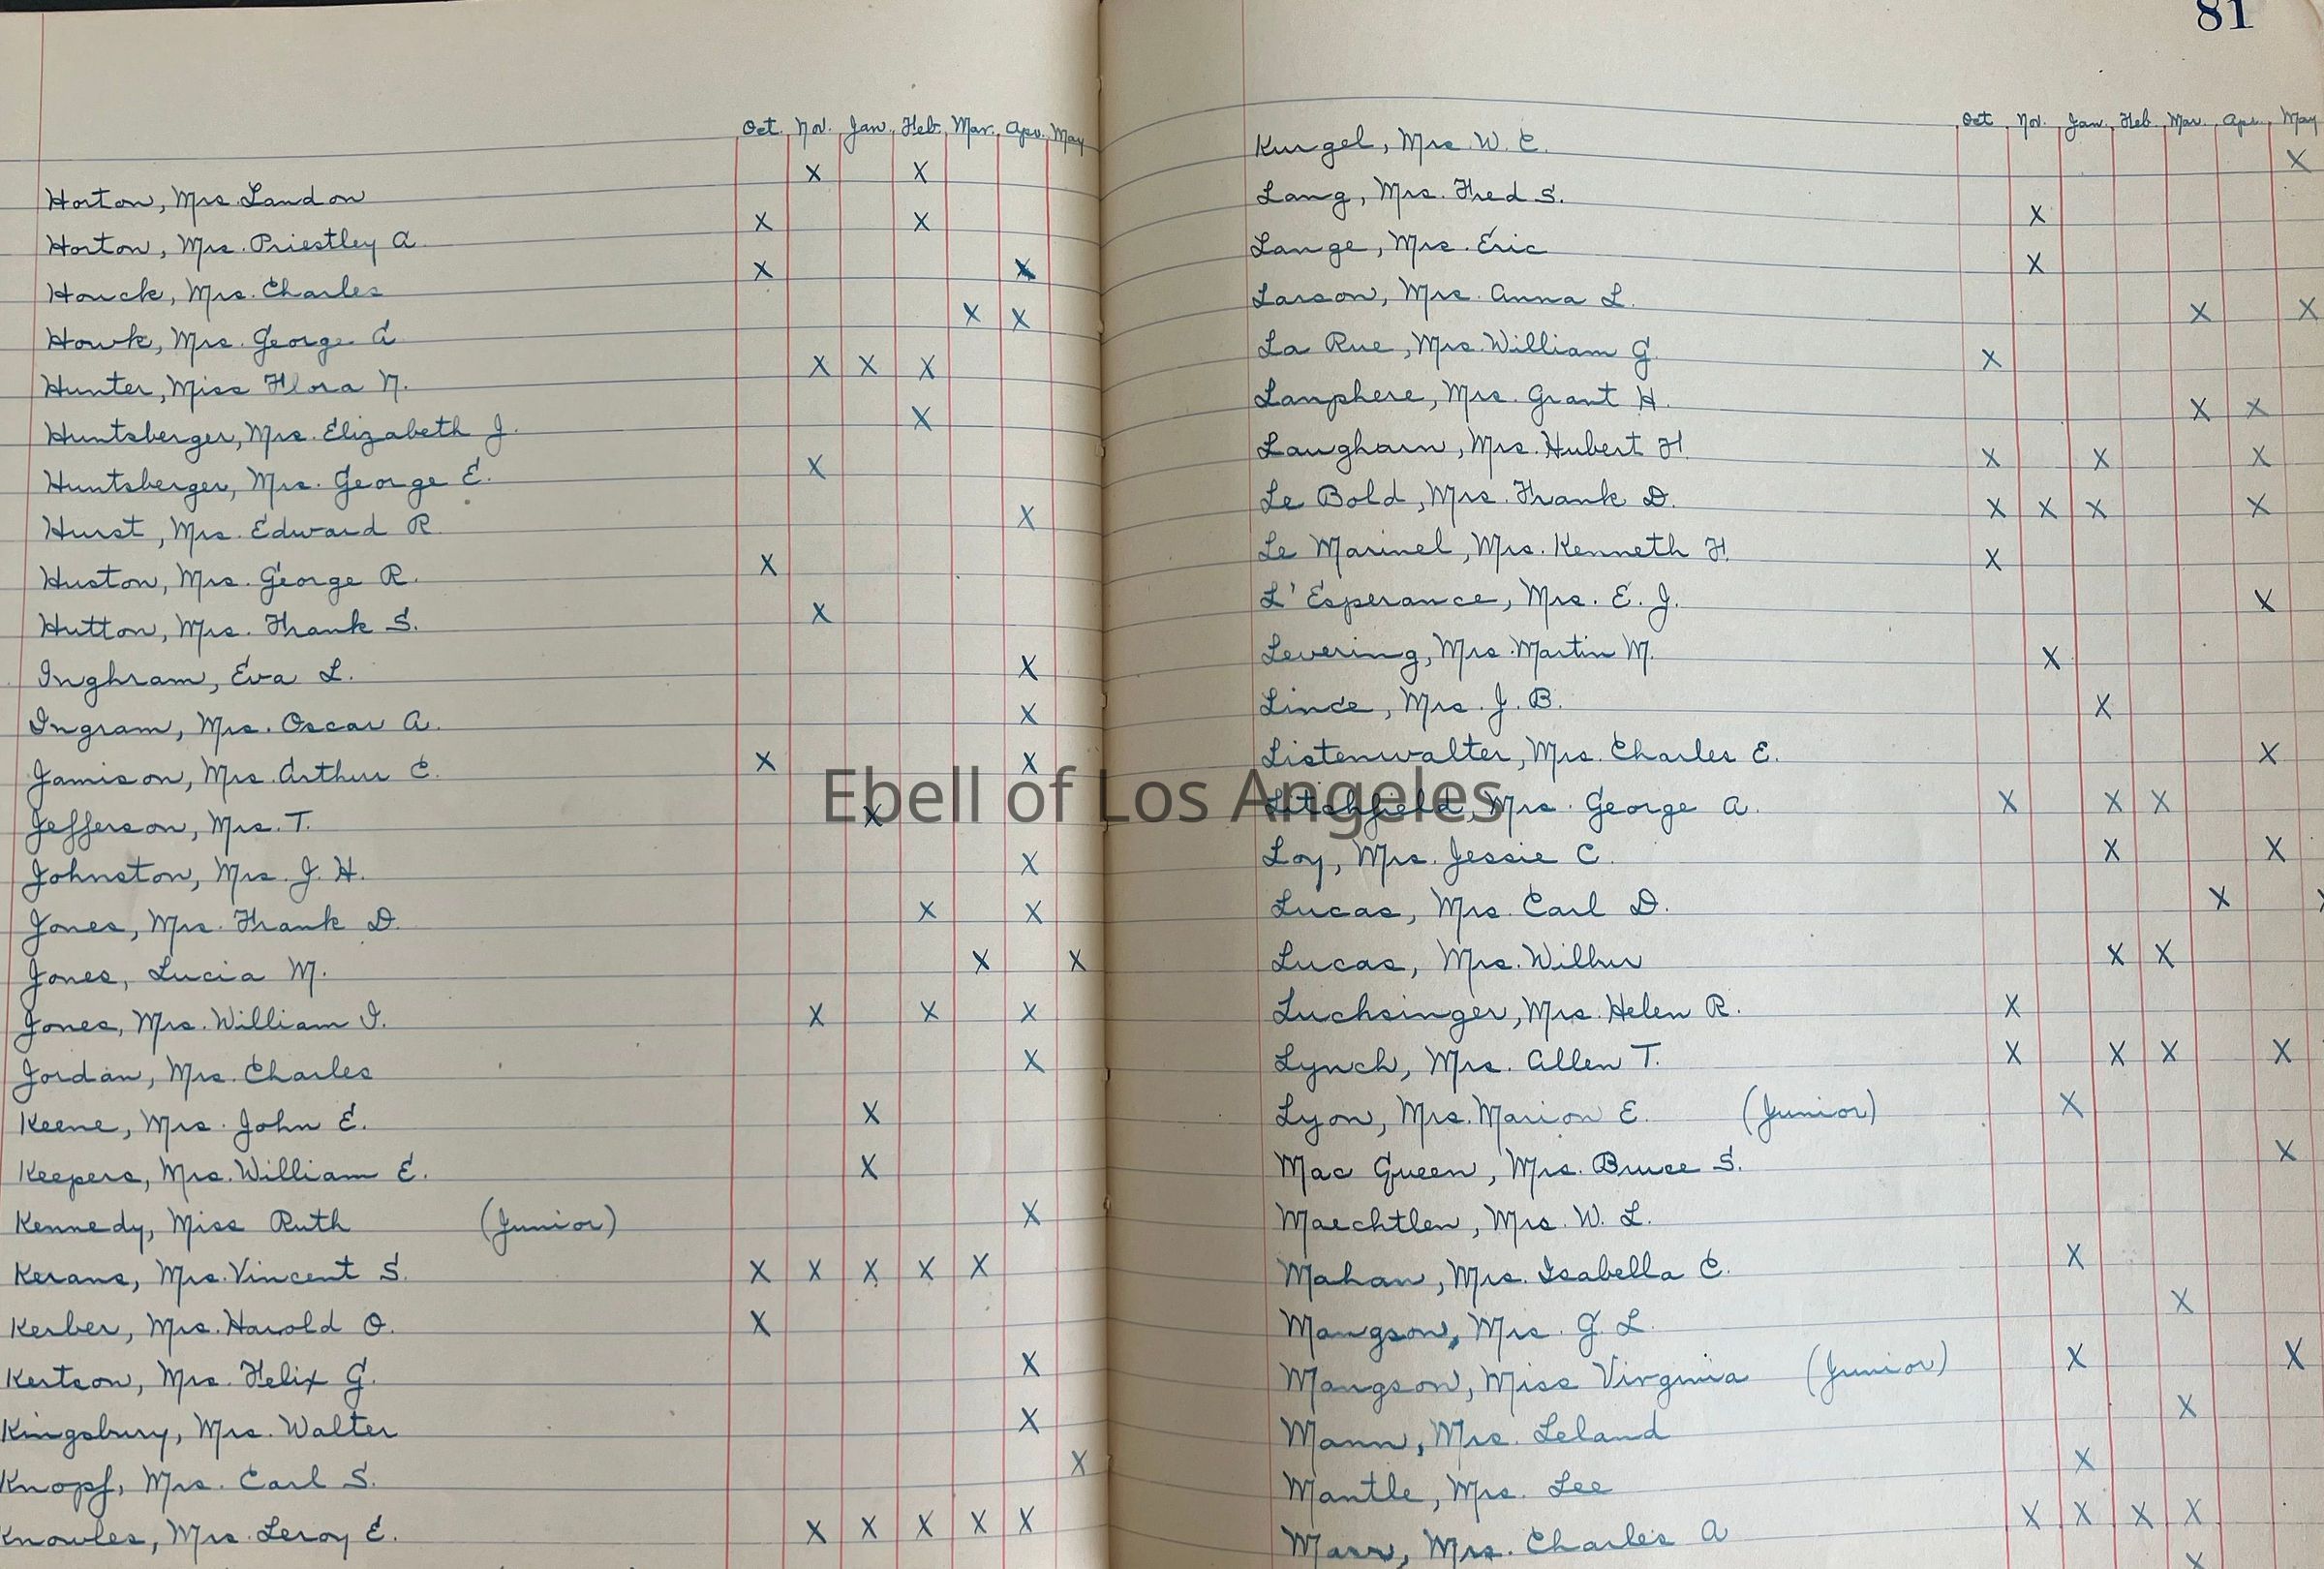 Oct. Nov. Jan. Feb. Mar. Apr. May
Horton, Mrs. Landon X X
Horton, Mrs. Priestley A. X X
Houck, Mrs. Charles X X
Howk, Mrs. George A. X X
Hunter, Miss Flora N. X X X
Huntsberger, Mrs. Elizabeth J. X
Huntsberger, Mrs. George E. X
Hurst, Mrs. Edward R. X
Huston, Mrs. George R. X
Hutton, Mrs. Frank S. X
Inghram, Eva L. X
Ingram, Mrs. Oscar A. X
Jamison, Mrs. Arthur C. X X
Jefferson, Mrs. T. X
Johnston, Mrs. J. H. X
Jones, Mrs. Frank D. X X
Jones, Lucia M. X X
Jones, Mrs. William I. X X X
Jordan, Mrs. Charles X
Keene, Mrs. John E. X
Keepers, Mrs. William E. X
Kennedy, Miss Ruth (Junior) X
Kerans, Mrs. Vincent S. X X X X X
Kerber, Mrs. Harold O. X
Kertson, Mrs. Felix G. X
Kingsbury, Mrs. Walter X
Knopf, Mrs. Carl S. X
Knowles, Mrs. Leroy E. X X X X X
81
Oct Nov. Jan. Feb. Mar. Apr. May
Kurgel, Mrs. W. C. X
Lang, Mrs. Fred S. X
Lange, Mrs. Eric X
Larson, Mrs. Anna L. X X
La Rue, Mrs. William G. X
Lanphere, Mrs. Grant H. X X
Laugharn, Mrs. Hubert H. X X X
Le Bold, Mrs. Frank D. X X X X
Le Marinel, Mrs. Kenneth H. X
L'Esperance, Mrs. E. J. X
Levering, Mrs. Martin M. X
Linde, Mrs. J. B. X
Listenwalter, Mrs. Charles E. X
Litchfield, Mrs. George A. X X X
Loy, Mrs. Jessie C. X X
Lucas, Mrs. Carl D. X X
Lucas, Mrs. Wilbur X X
Luchsinger, Mrs. Helen R. X
Lynch, Mrs. Allen T. X X X X
Lyon, Mrs. Marion E. (Junior) X
Mac Queen, Mrs. Bruce S. X
Maechtlen, Mrs. W. L.
Mahan, Mrs. Isabella C. X
Mangson, Mrs. G. L. X
Mangson, Miss Virginia (Junior) X X
Mann, Mrs. Leland X
Mantle, Mrs. Lee X
Marr, Mrs. Charles A X X X X
X
Ebell of Los Angeles